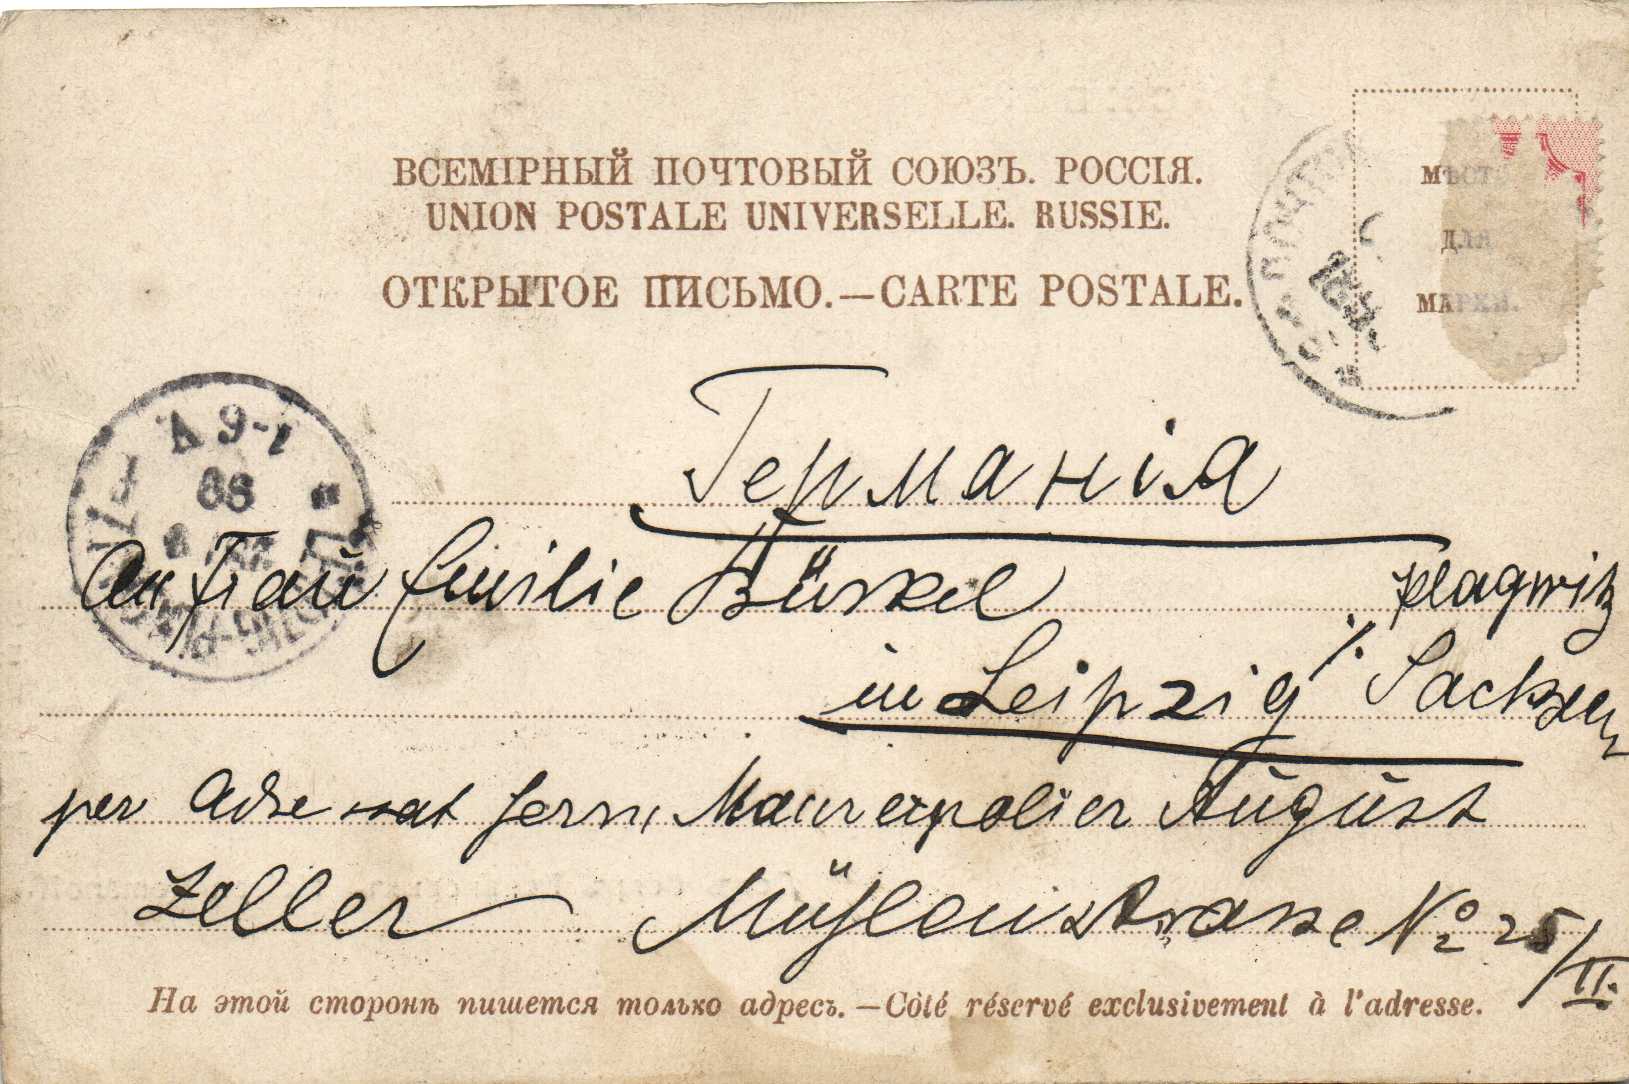 ВСЕМІРНЫЙ ПОЧТОВЫЙ СОЮЗЪ. РОССІЯ.
UNION POSTALE UNIVERSELLE. RUSSIE.
ОТКРЫТОЕ ПИСЬМО.—CARTE POSTALE.
МѢСТО
ДЛЯ
МАРКИ.
Германія
An Frau Emilie Bürkel
Plagwitz
in Leipzig i/. Sachsen
per Adressat Herrn Maurerpolier August
Zeller Mühlenstrasse No 25/II.
На этой сторонѣ пишется только адресъ.—Côté réservé exclusivement à l'adresse.